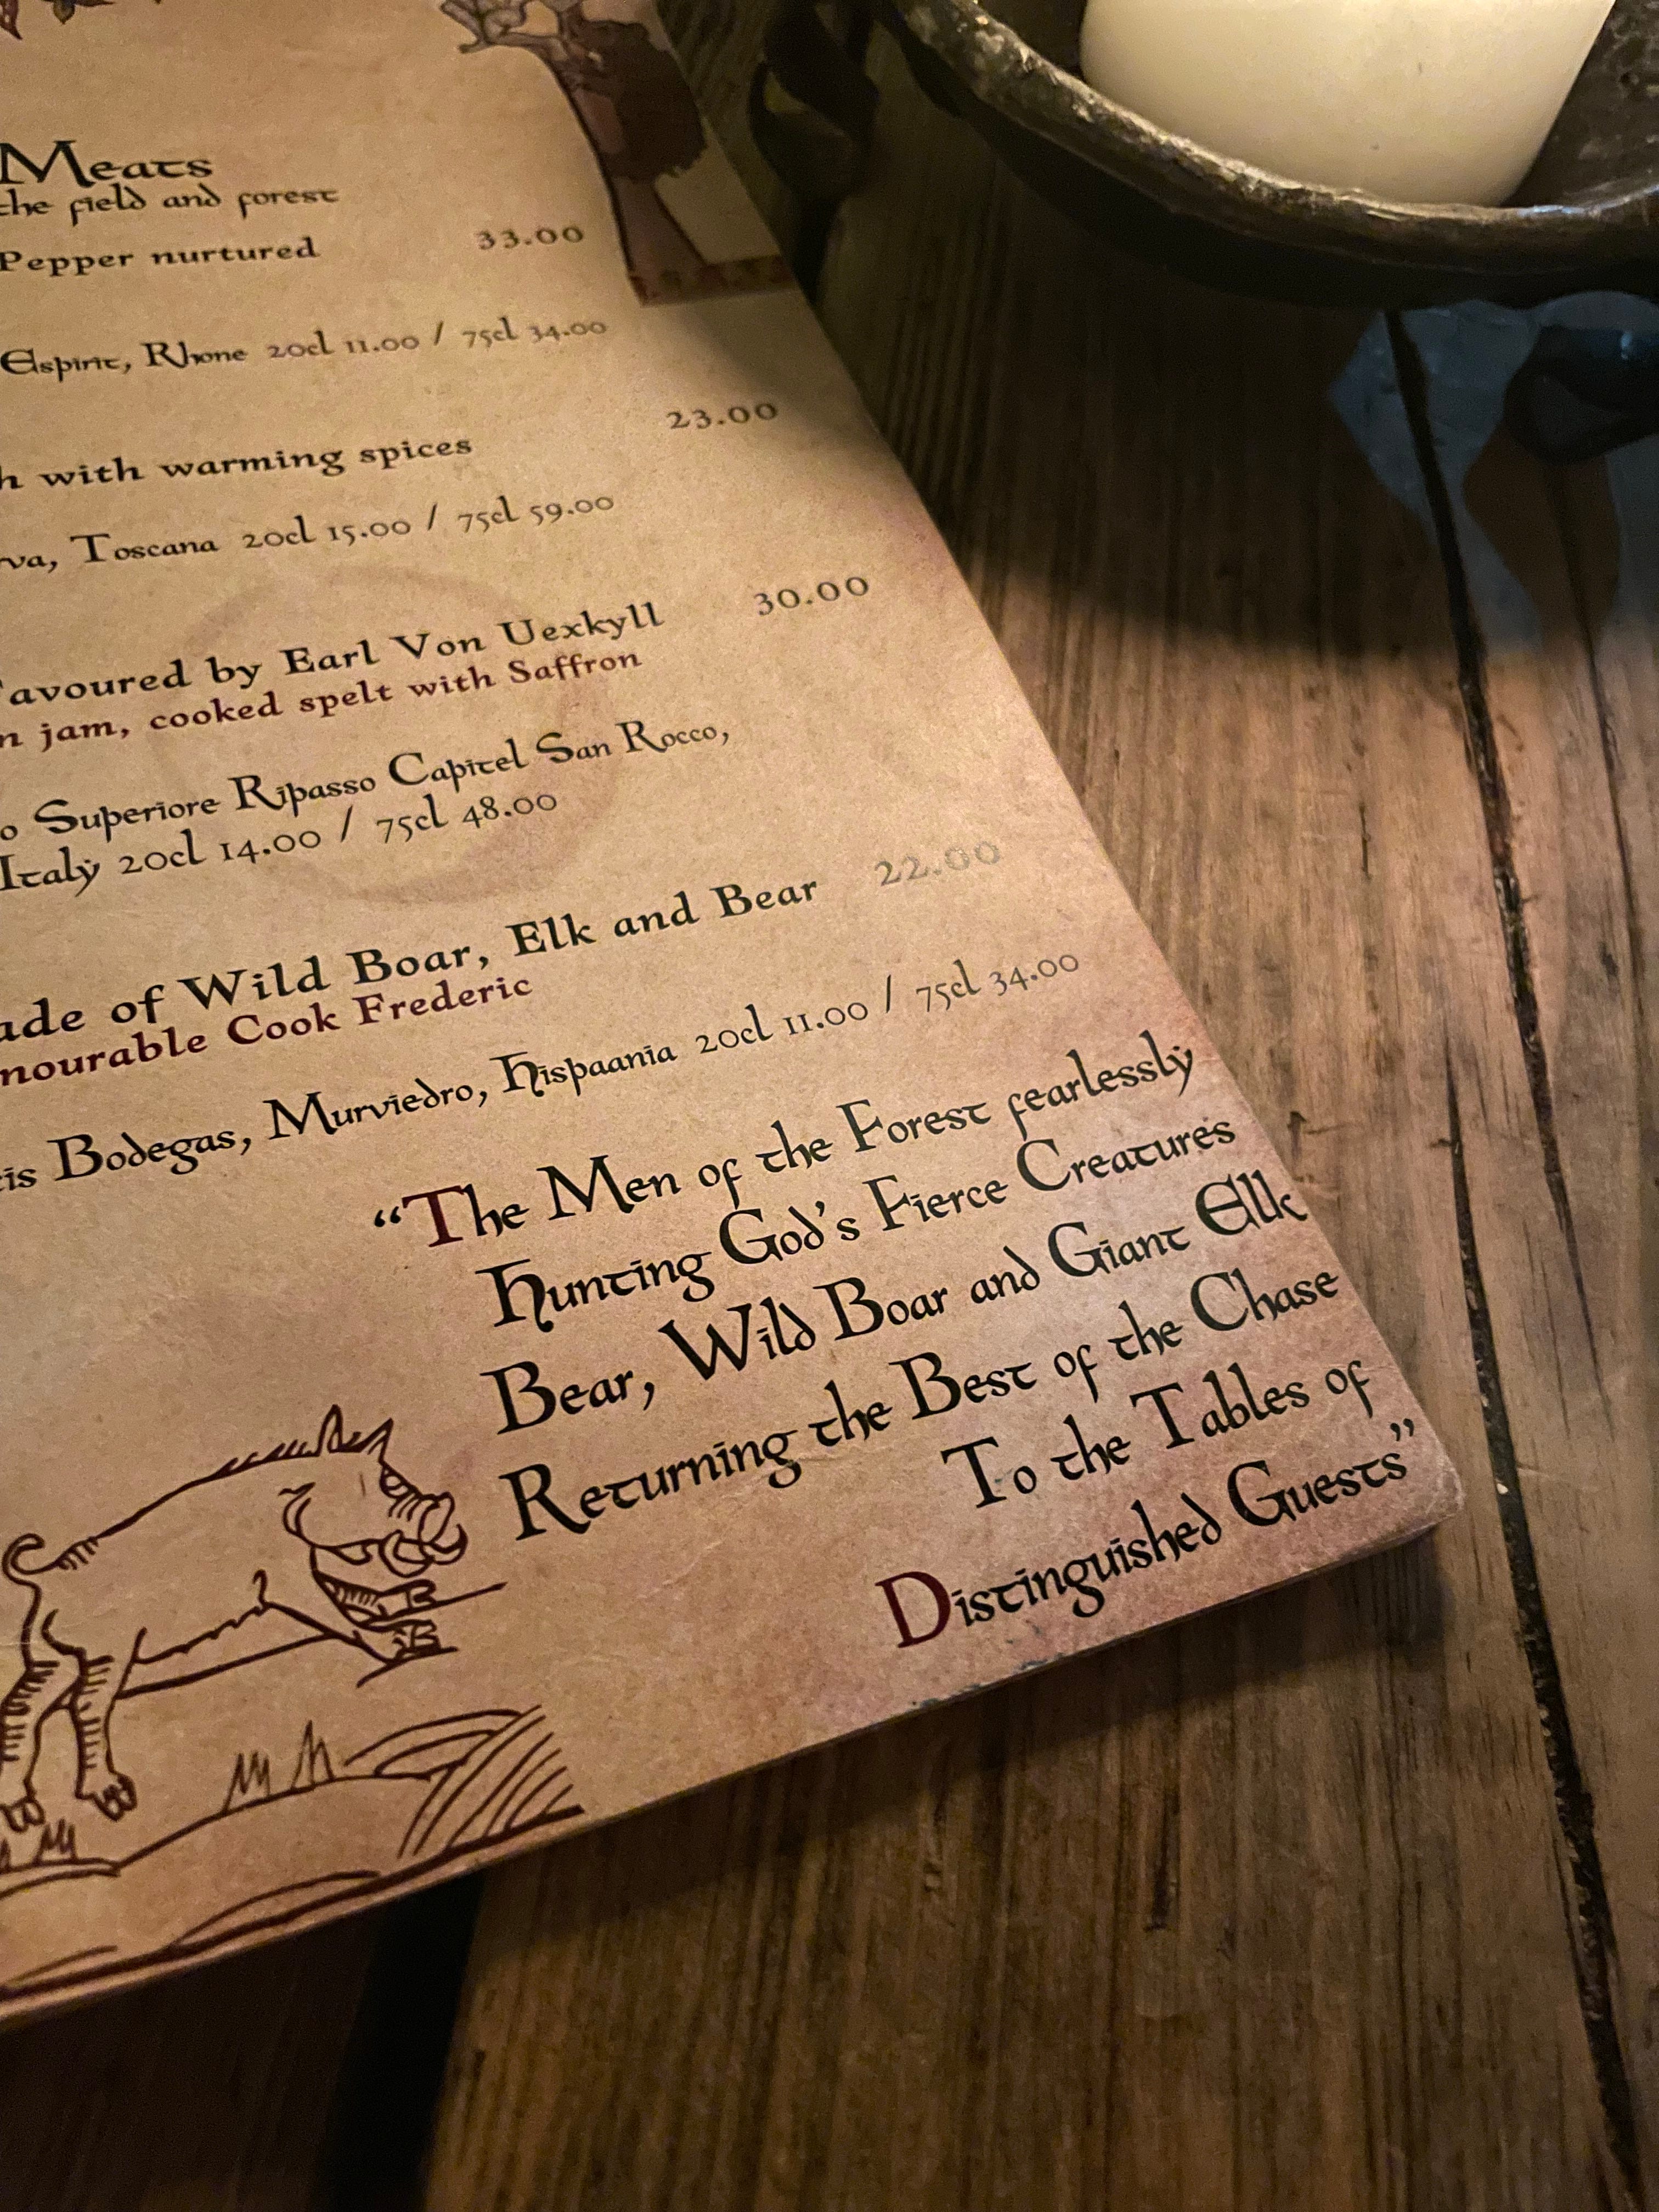 Meats
the field and forest
Pepper nurtured 33.00
Espirit, Rhone 20cl 11.00 / 75cl 34.00
with warming spices 23.00
Toscana 20cl 15.00 / 75cl 59.00
Favoured by Earl Von Uexkyll 30.00
jam, cooked spelt with Saffron
Superiore Ripasso Capitel San Rocco,
Italy 20cl 14.00 / 75cl 48.00
of Wild Boar, Elk and Bear 22.00
Cook Frederic
Bodegas, Murviedro, Hispaania 20cl 11.00 / 75cl 34.00
“The Men of the Forest fearlessly
Hunting God's Fierce Creatures
Bear, Wild Boar and Giant Elk
Returning the Best of the Chase
To the Tables of
Distinguished Guests”